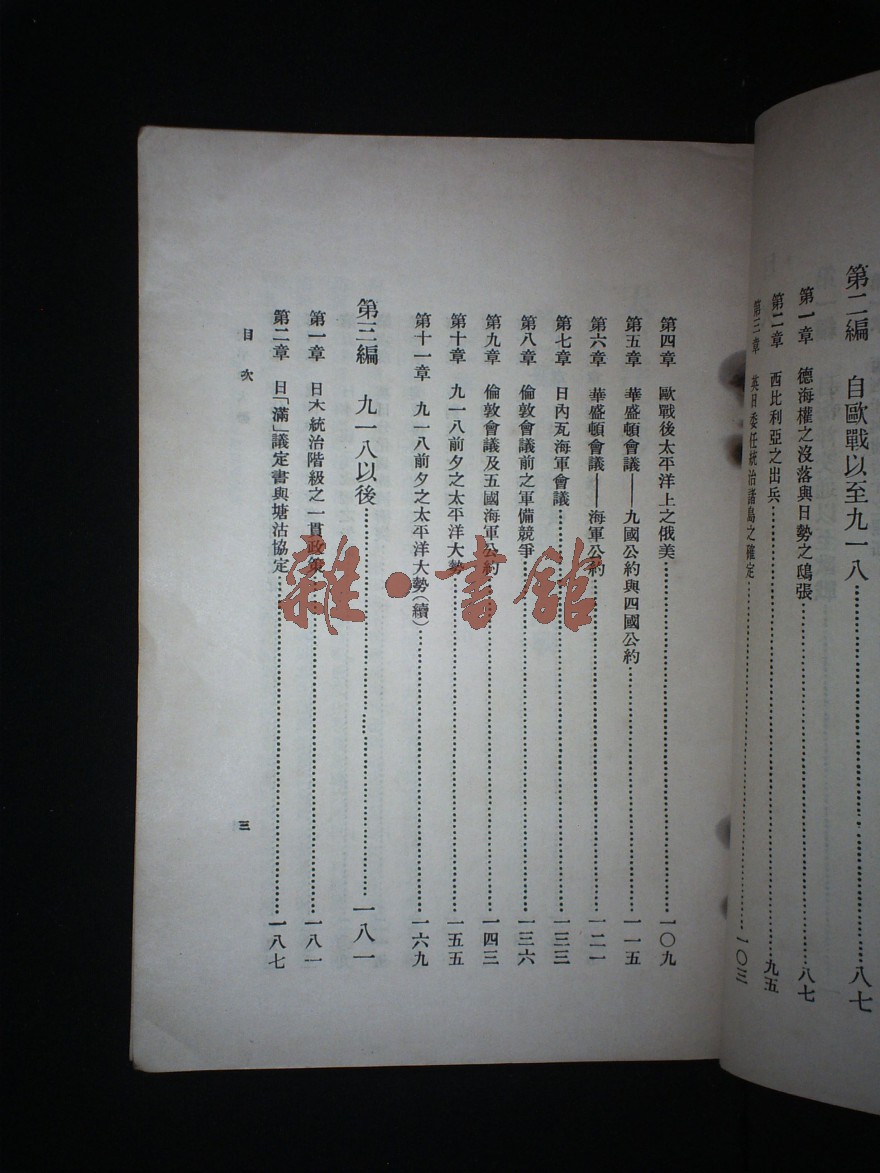 第二編　自歐戰以至九一八……八七
第一章　德海權之沒落與日勢之鴟張……八七
第二章　西比利亞之出兵……九五
第三章　英日委任統治諸島之確定……一〇三
第四章　歐戰後太平洋上之俄美……一〇九
第五章　華盛頓會議——九國公約與四國公約……一一五
第六章　華盛頓會議——海軍公約……一二一
第七章　日內瓦海軍會議……一三三
第八章　倫敦會議前之軍備競爭……一三六
第九章　倫敦會議及五國海軍公約……一四三
第十章　九一八前夕之太平洋大勢……一五五
第十一章　九一八前夕之太平洋大勢(續)……一六九
第三編　九一八以後……一八一
第一章　日本統治階級之一貫政策……一八一
第二章　日「滿」議定書與塘沽協定……一八七
目次
三
雜·書館